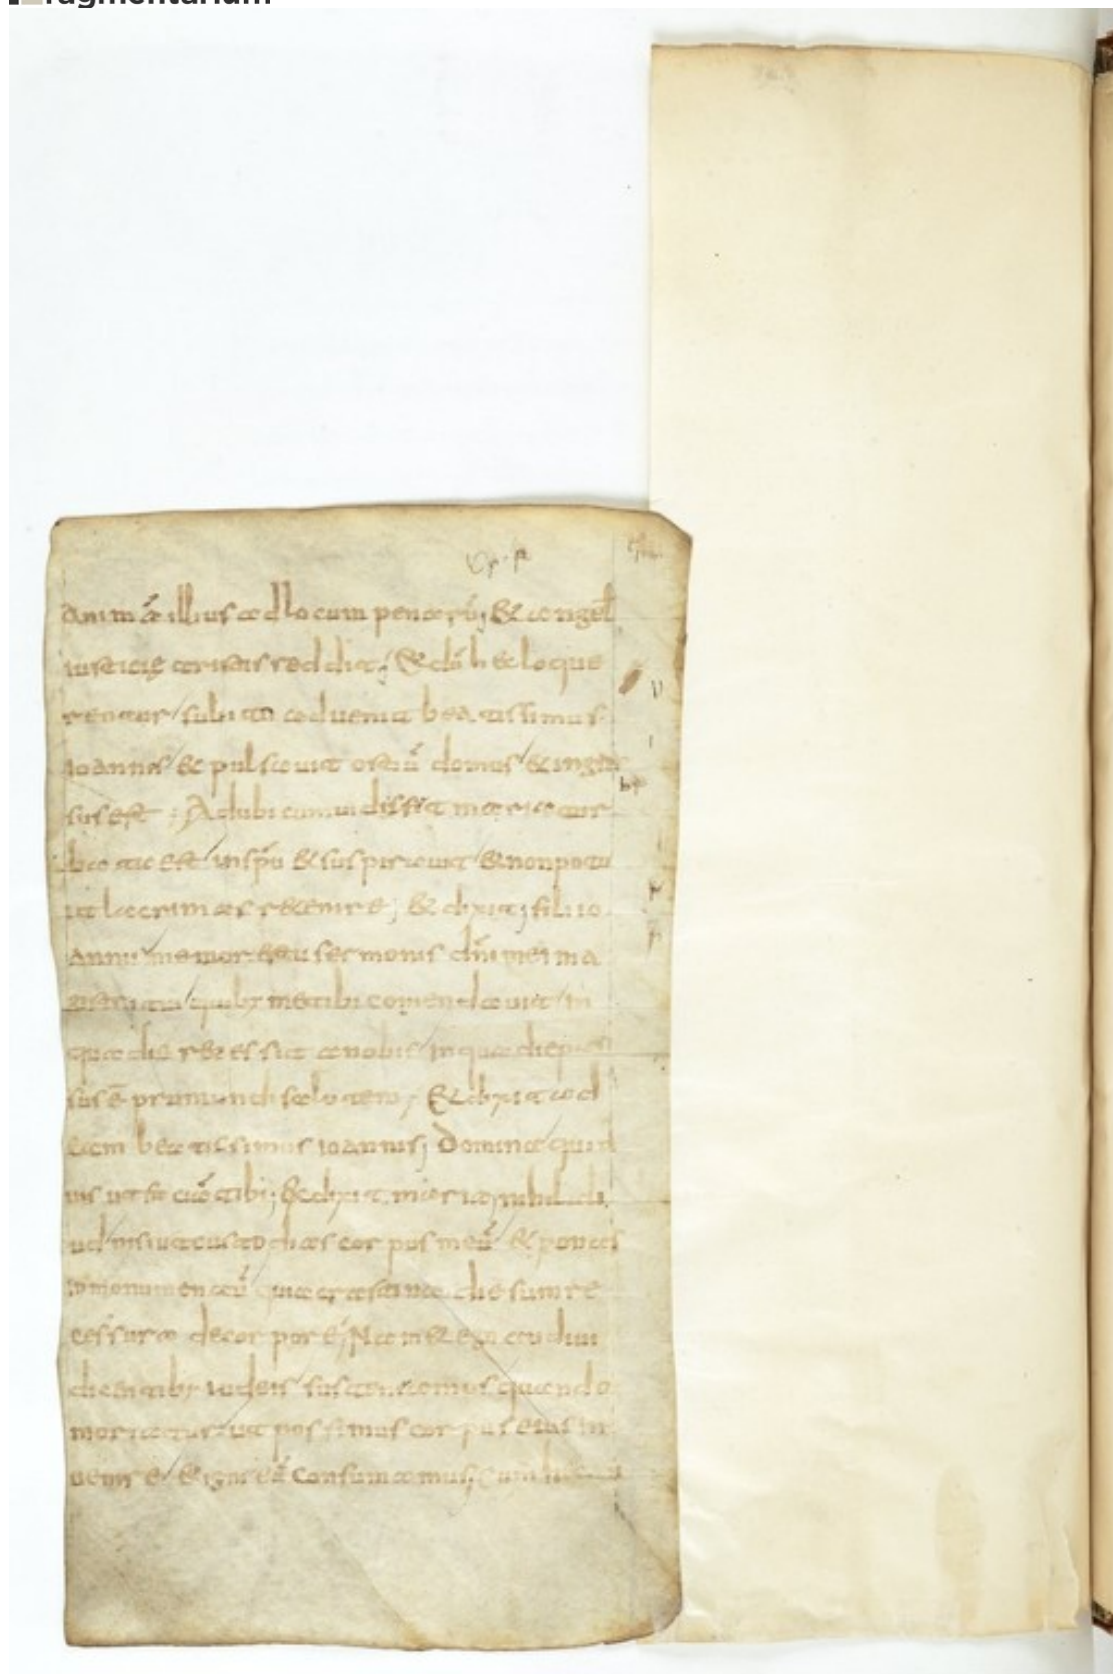 fragmentarium
animā illius ad locum penarū; & angel
iusticię
reddit; & dū hec loque
rentur / subito advenit beatissimus
ioannes / & pulsavit ostiū domus / & ingres
sus est; At ubi eum vidisset maria tur
bata est in spū & suspiravit / & non potu
it lacrimas retenire; & dixit; fili io
annis memor esto sermonis dn̄i mei ma
gistri tui / quibꝫ me tibi comendavit / in
qua die recessit a nobis / in qua die pas
sus ē pro mundi salutem; & dixit ad
eam beatissimus ioannis; Domina quid
vis ut sit cū tibi; & dixit maria; nihil ali
ud / nisi ut custodias corpus meū / & ponas
in monumentū / quia crastina die sum re
cessura de corpore; Nam & ego audivi
dicentibꝫ iudeis / sustineamus quando
moriatur / ut possimus corpus eius in
venire / & igni eū consumamus; Cum